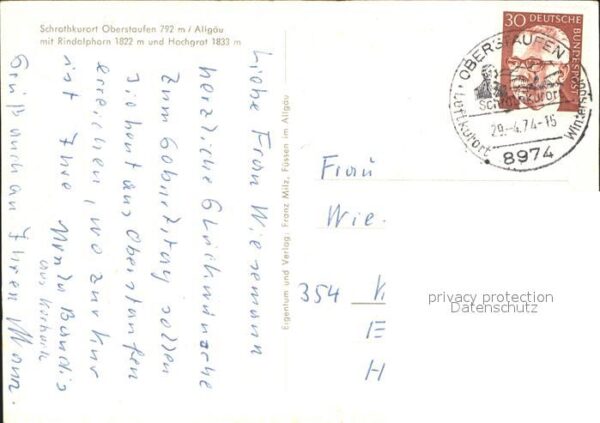 Schrothkurort Oberstaufen 792 m / Allgäu
mit Rindalphorn 1822 m und Hochgrat 1833 m
Liebe Frau Wiesemann
herzliche Glückwünsche
zum Geburtstag sollen
Sie heut aus Oberstaufen
erreichen, wo zur Kur
ist Ihre
aus
Gruß auch an Ihren Mann.
Eigentum und Verlag: Franz Milz, Füssen im Allgäu
30 DEUTSCHE BUNDESPOST
OBERSTAUFEN
Schrothkurort
Luftkurort
Wintersport
29.-4.74-15
8974
Frau
Wie.
354 K
E
H
privacy protection
Datenschutz